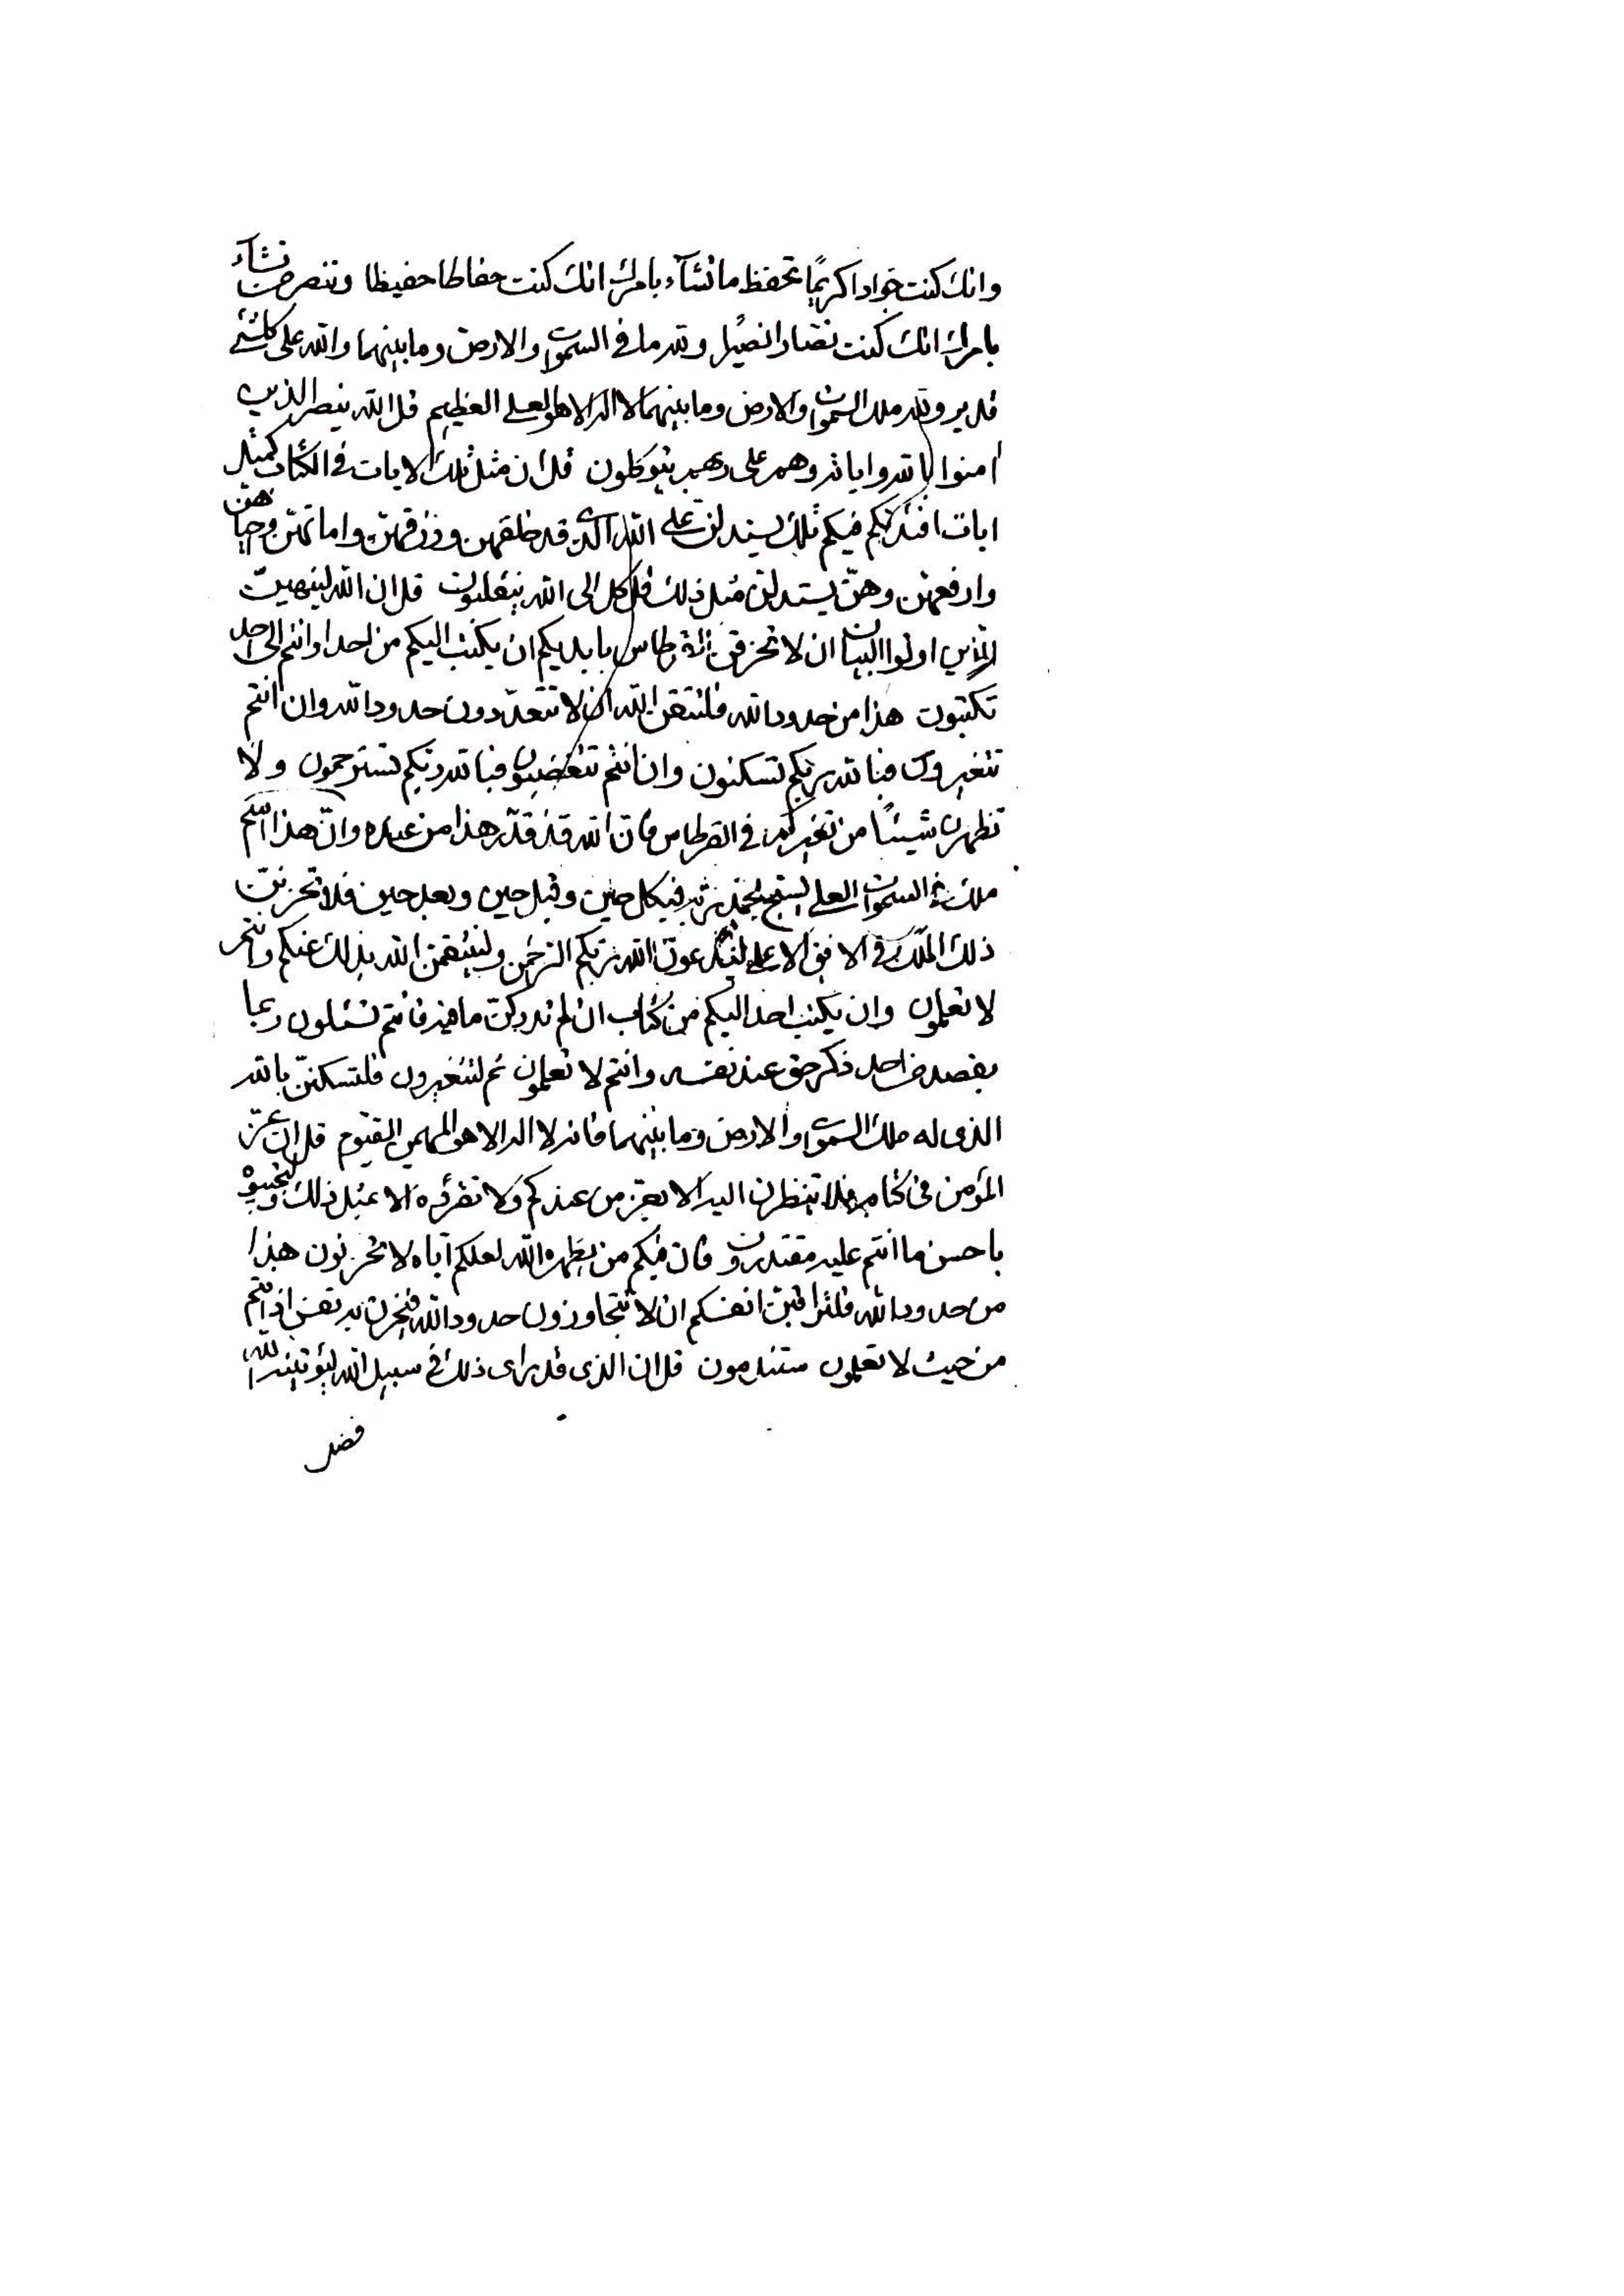 وانك كنت جوادا كريمًا تحفظ ما تشآء بامرك انك كنت حفاظا حفيظا وتنصر من تشآء
بامرك انك كنت نصارا نصيرًا ولله ما فى السموات والارض وما بينهما والله على كلشئ
قدير ولله ملك السموات والارض وما بينهما لا اله الا هو العلى العظيم قل الله ينصر الذين
امنوا بالله واياته وهم على ربهم يتوكلون قل ان مثل تلك الايات فى الكتاب كمثل
ايات افئدتكم فيكم تلك يستدلن على الله الذى قد خلقهن ورزقهن واماتهن واحياهن
وارفعهن وهنّ يستدلن مثل ذلك قل كل الى الله ينقلبون قل ان الله لينهين
الذين اوتوا البيان ان لا تحزقن القرطاس بايديكم ان يكتب اليكم من احد او انتم الى احد
تكتبون هذا من حدود الله فلتتقن الله ان لا تتعدّدون حدود الله وان انتم
تتغيرون فبالله ربكم تسكنون وان انتم تتغضبون فبالله ربكم تسترحمون ولا
تظهرن شيئًا من تغيركم فى القرطاس فان الله قد قدّر هذا من عباده وانّ هذا اسم
ملك فى السموات العلى يسبح بحمد ربه فيكل حين وقبل حين وبعد حين فلا تحزننّ
ذلك الملك فى الافق الاعلى ليدعونّ الله ربكم الرحمن ولينتقمن الله بذلك عنكم وانتم
لا تعلمون وان يكتب احد اليكم من كتاب ان لم تدركن ما فيه فانتم تسئلون ربما
يقصد من احد ذكر حق عند نفسه وانتم لا تعلمون ثم لتتغيرون فلتسكننّ بالله
الذى له ملك السموات والارض وما بينهما فانه لا اله الا هو المهيمن القيوم قل ان عزّ
المؤمن فى كتابه فلا تنظرن اليه الا بعز من عندكم ولا تقرئه الا بمثل ذلك ولتجيبوه
باحسن ما انتم عليه مقتدرون فان فيكم من يظهره الله لعلكم اياه لا تحزنون هذا
من حدود الله فلتراقبنّ انفسكم ان لا تتجاوزون حدود الله فيحزن به نفس اذ انتم
من حيث لا تعلمون ستندمون قل ان الذى قد راى ذلك فى سبيل الله ليؤتينه الله
فضل